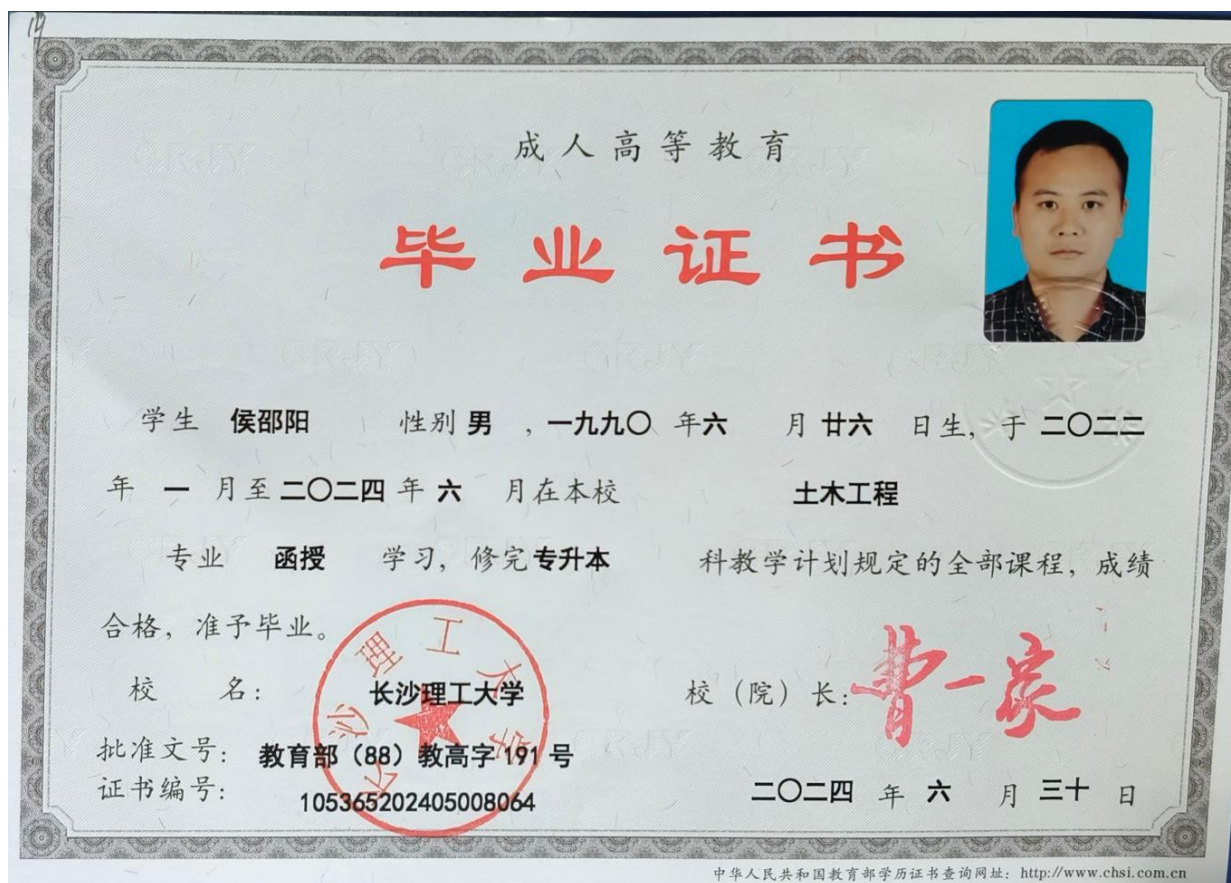 19
成人高等教育
毕业证书
学生 侯邵阳 性别 男 ，一九九〇 年六 月 廿六 日生，于 二〇二二
年 一 月至 二〇二四 年 六 月在本校 土木工程
专业 函授 学习，修完 专升本 科教学计划规定的全部课程，成绩
合格，准予毕业。
校 名： 长沙理工大学 校（院）长：曹一家
批准文号： 教育部（88）教高字 191 号
证书编号： 105365202405008064 二〇二四 年 六 月 三十 日
长沙理工大学
中华人民共和国教育部学历证书查询网址：http://www.chsi.com.cn
CRJY
CRJY
CRJY
CRJY
CRJY